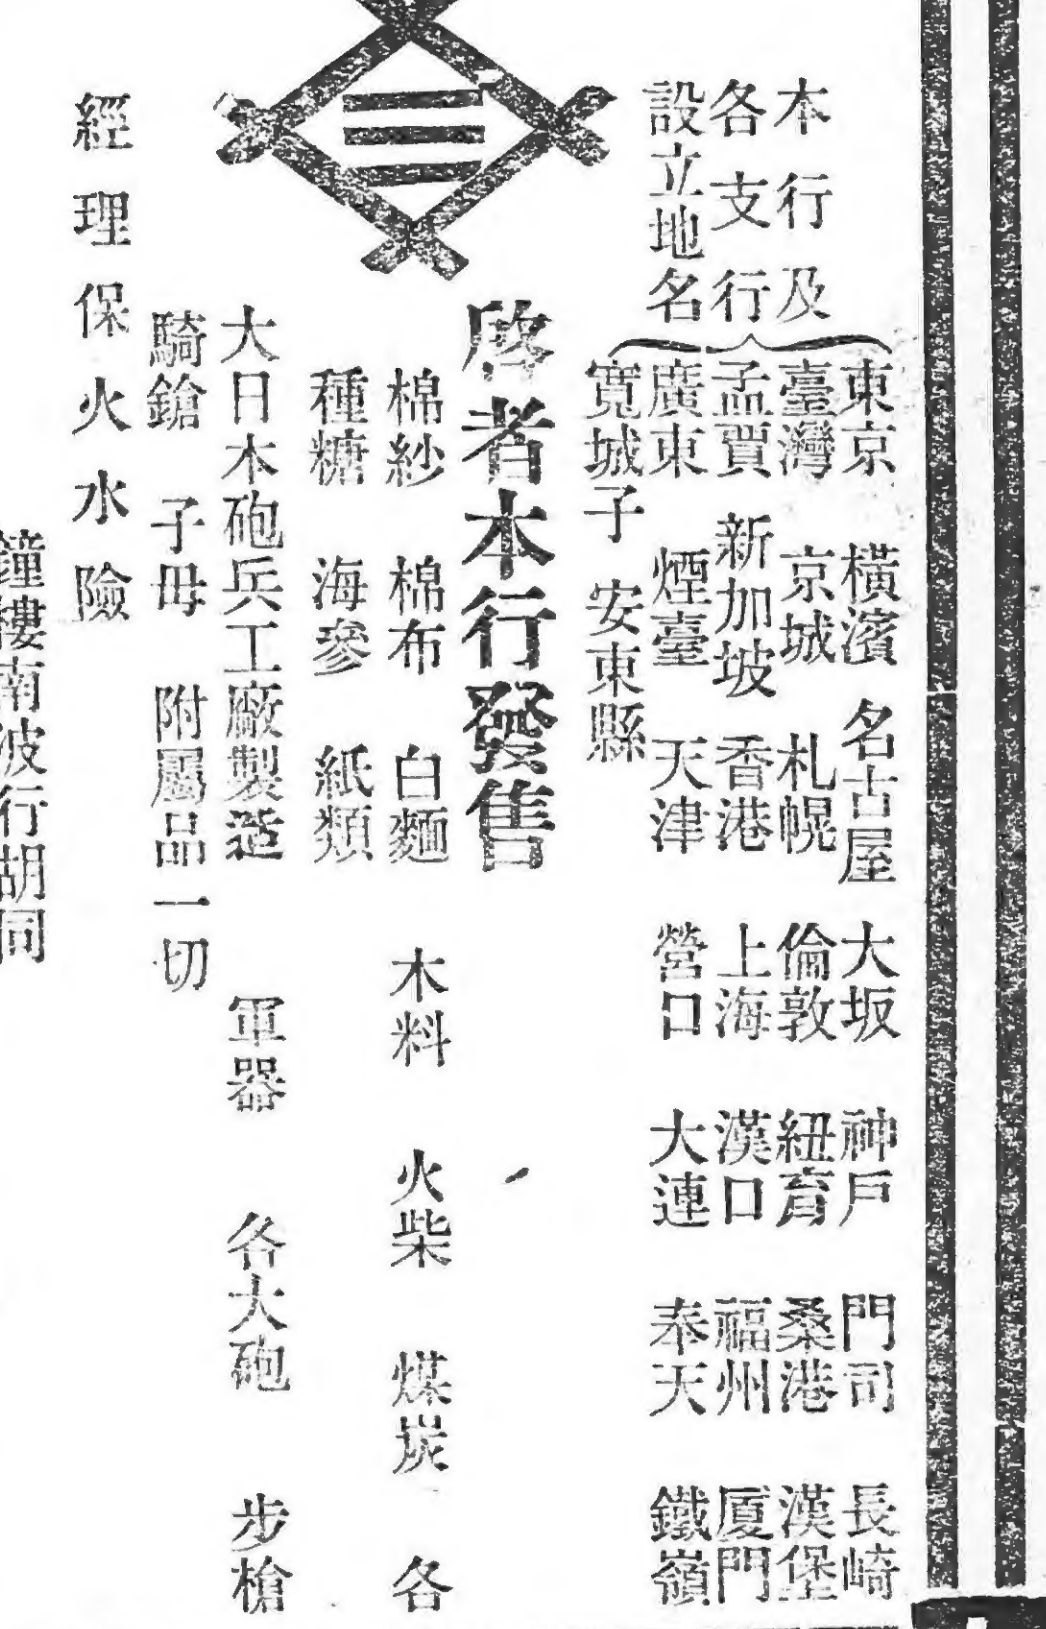 本行及
各支行
設立地名
東京 橫濱 名古屋 大坂 神戶 門司 長崎
臺灣 京城 札幌 倫敦 紐育 桑港 漢堡
孟買 新加坡 香港 上海 漢口 福州 厦門
廣東 煙臺 天津 營口 大連 奉天 鐵嶺
寬城子 安東縣
三
啓者本行發售
棉紗 棉布 白麵 木料 火柴 煤炭 各
種糖 海參 紙類
大日本砲兵工廠製造 軍器 各大砲 步槍
騎鎗 子母 附屬品一切
經理保火水險
鐘樓南波行胡同